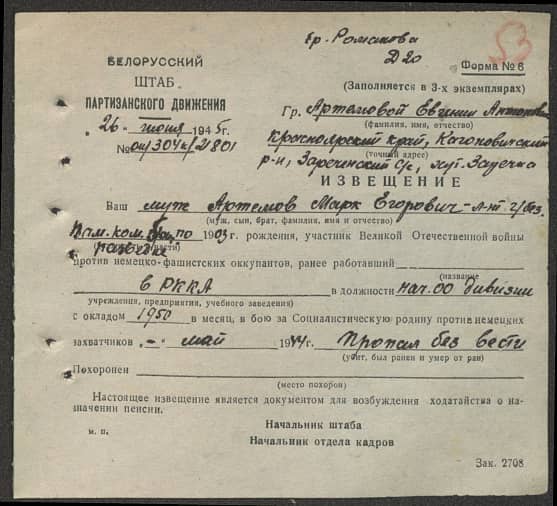 гр. Романова
Д20
53
БЕЛОРУССКИЙ
ШТАБ
ПАРТИЗАНСКОГО ДВИЖЕНИЯ
Форма № 6
(Заполняется в 3-х экземплярах)
„26“ июня 1945г.
№ 04/304н/21801
Гр. Артемовой Евгении Антоновне
(фамилия, имя, отчество)
Красноярский край, Кагоновичский
(точный адрес)
р-н, Зареченский С/с, хут. Зауечка
ИЗВЕЩЕНИЕ
Ваш муж Артемов Марк Егорович – л-нт г/без.
(муж, сын, брат, фамилия, имя и отчество)
Пам. ком. бр. по 1903 г. рождения, участник Великой Отечественной войны
разведке
против немецко-фашистских оккупантов, ранее работавший
(название
в РККА в должности нач. ОО дивизии
учреждения, предприятия, учебного заведения)
с окладом 1950 в месяц, в бою за Социалистическую родину против немецких
захватчиков „–“ май 1944г. Пропал без вести
(убит, был ранен и умер от ран)
Похоронен
(место похорон)
Настоящее извещение является документом для возбуждения ходатайства о на-
значении пенсии.
м. п.
Начальник штаба
Начальник отдела кадров
Зак. 2708